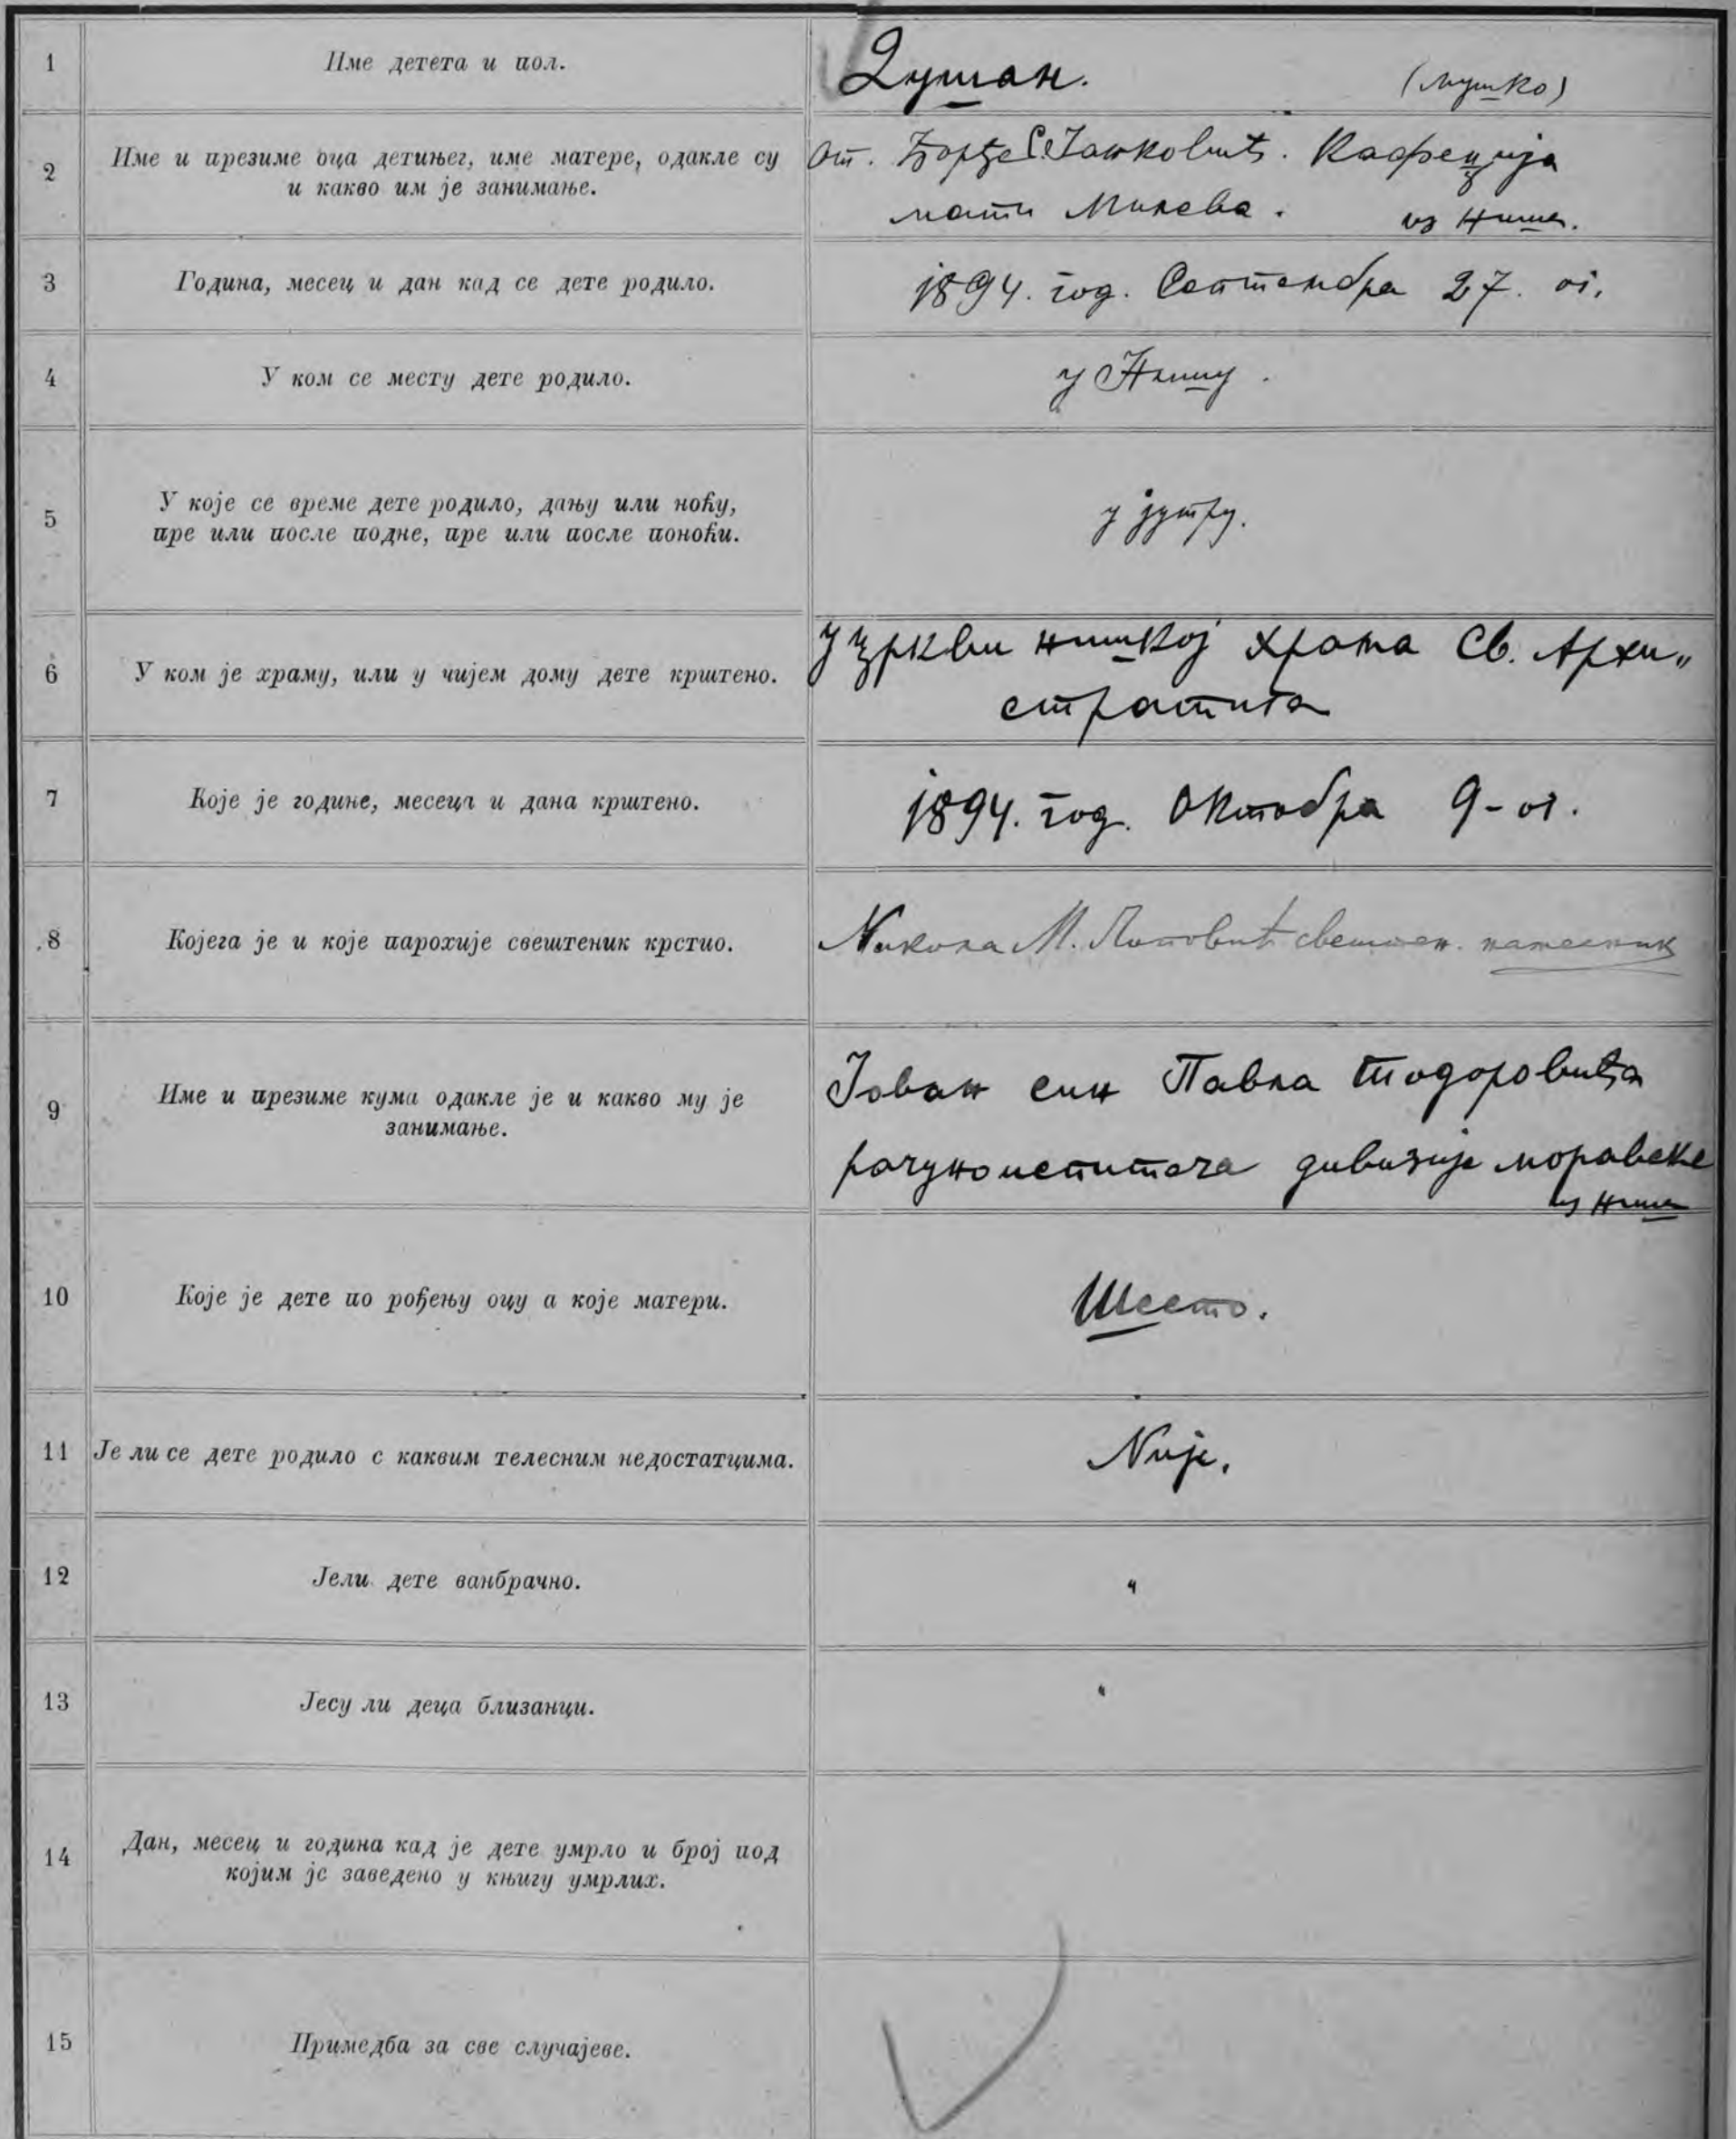 1
Име детета и пол.
Душан.
(мушко)
2
Име и презиме оца детињег, име матере, одакле су
и какво им је занимање.
От. Ђорђе С. Јанковић. Кафеџија
мати Милева.
из Ниша.
3
Година, месец и дан кад се дете родило.
1894. год. Септембра 27. ог.
4
У ком се месту дете родило.
у Нишу.
5
У које се време дете родило, дању или ноћу,
пре или после подне, пре или после поноћи.
у јутру.
6
У ком је храму, или у чијем дому дете крштено.
У цркви нишкој храма Св. Архи„
стратига
7
Које је године, месеца и дана крштено.
1894. год. Октобра 9-ог.
8
Којега је и које парохије свештеник крстио.
Никола М. Поповић свештен. намесник
9
Име и презиме кума одакле је и какво му је
занимање.
Јован син Павла Тодоровића
рачуноиспитача дивизије моравске
из Ниша
10
Које је дете по рођењу оцу а које матери.
Шесто.
11
Је ли се дете родило с каквим телесним недостатцима.
Није.
12
Јели дете ванбрачно.
"
13
Јесу ли деца близанци.
"
14
Дан, месец и година кад је дете умрло и број под
којим је заведено у књигу умрлих.
15
Примедба за све случајеве.